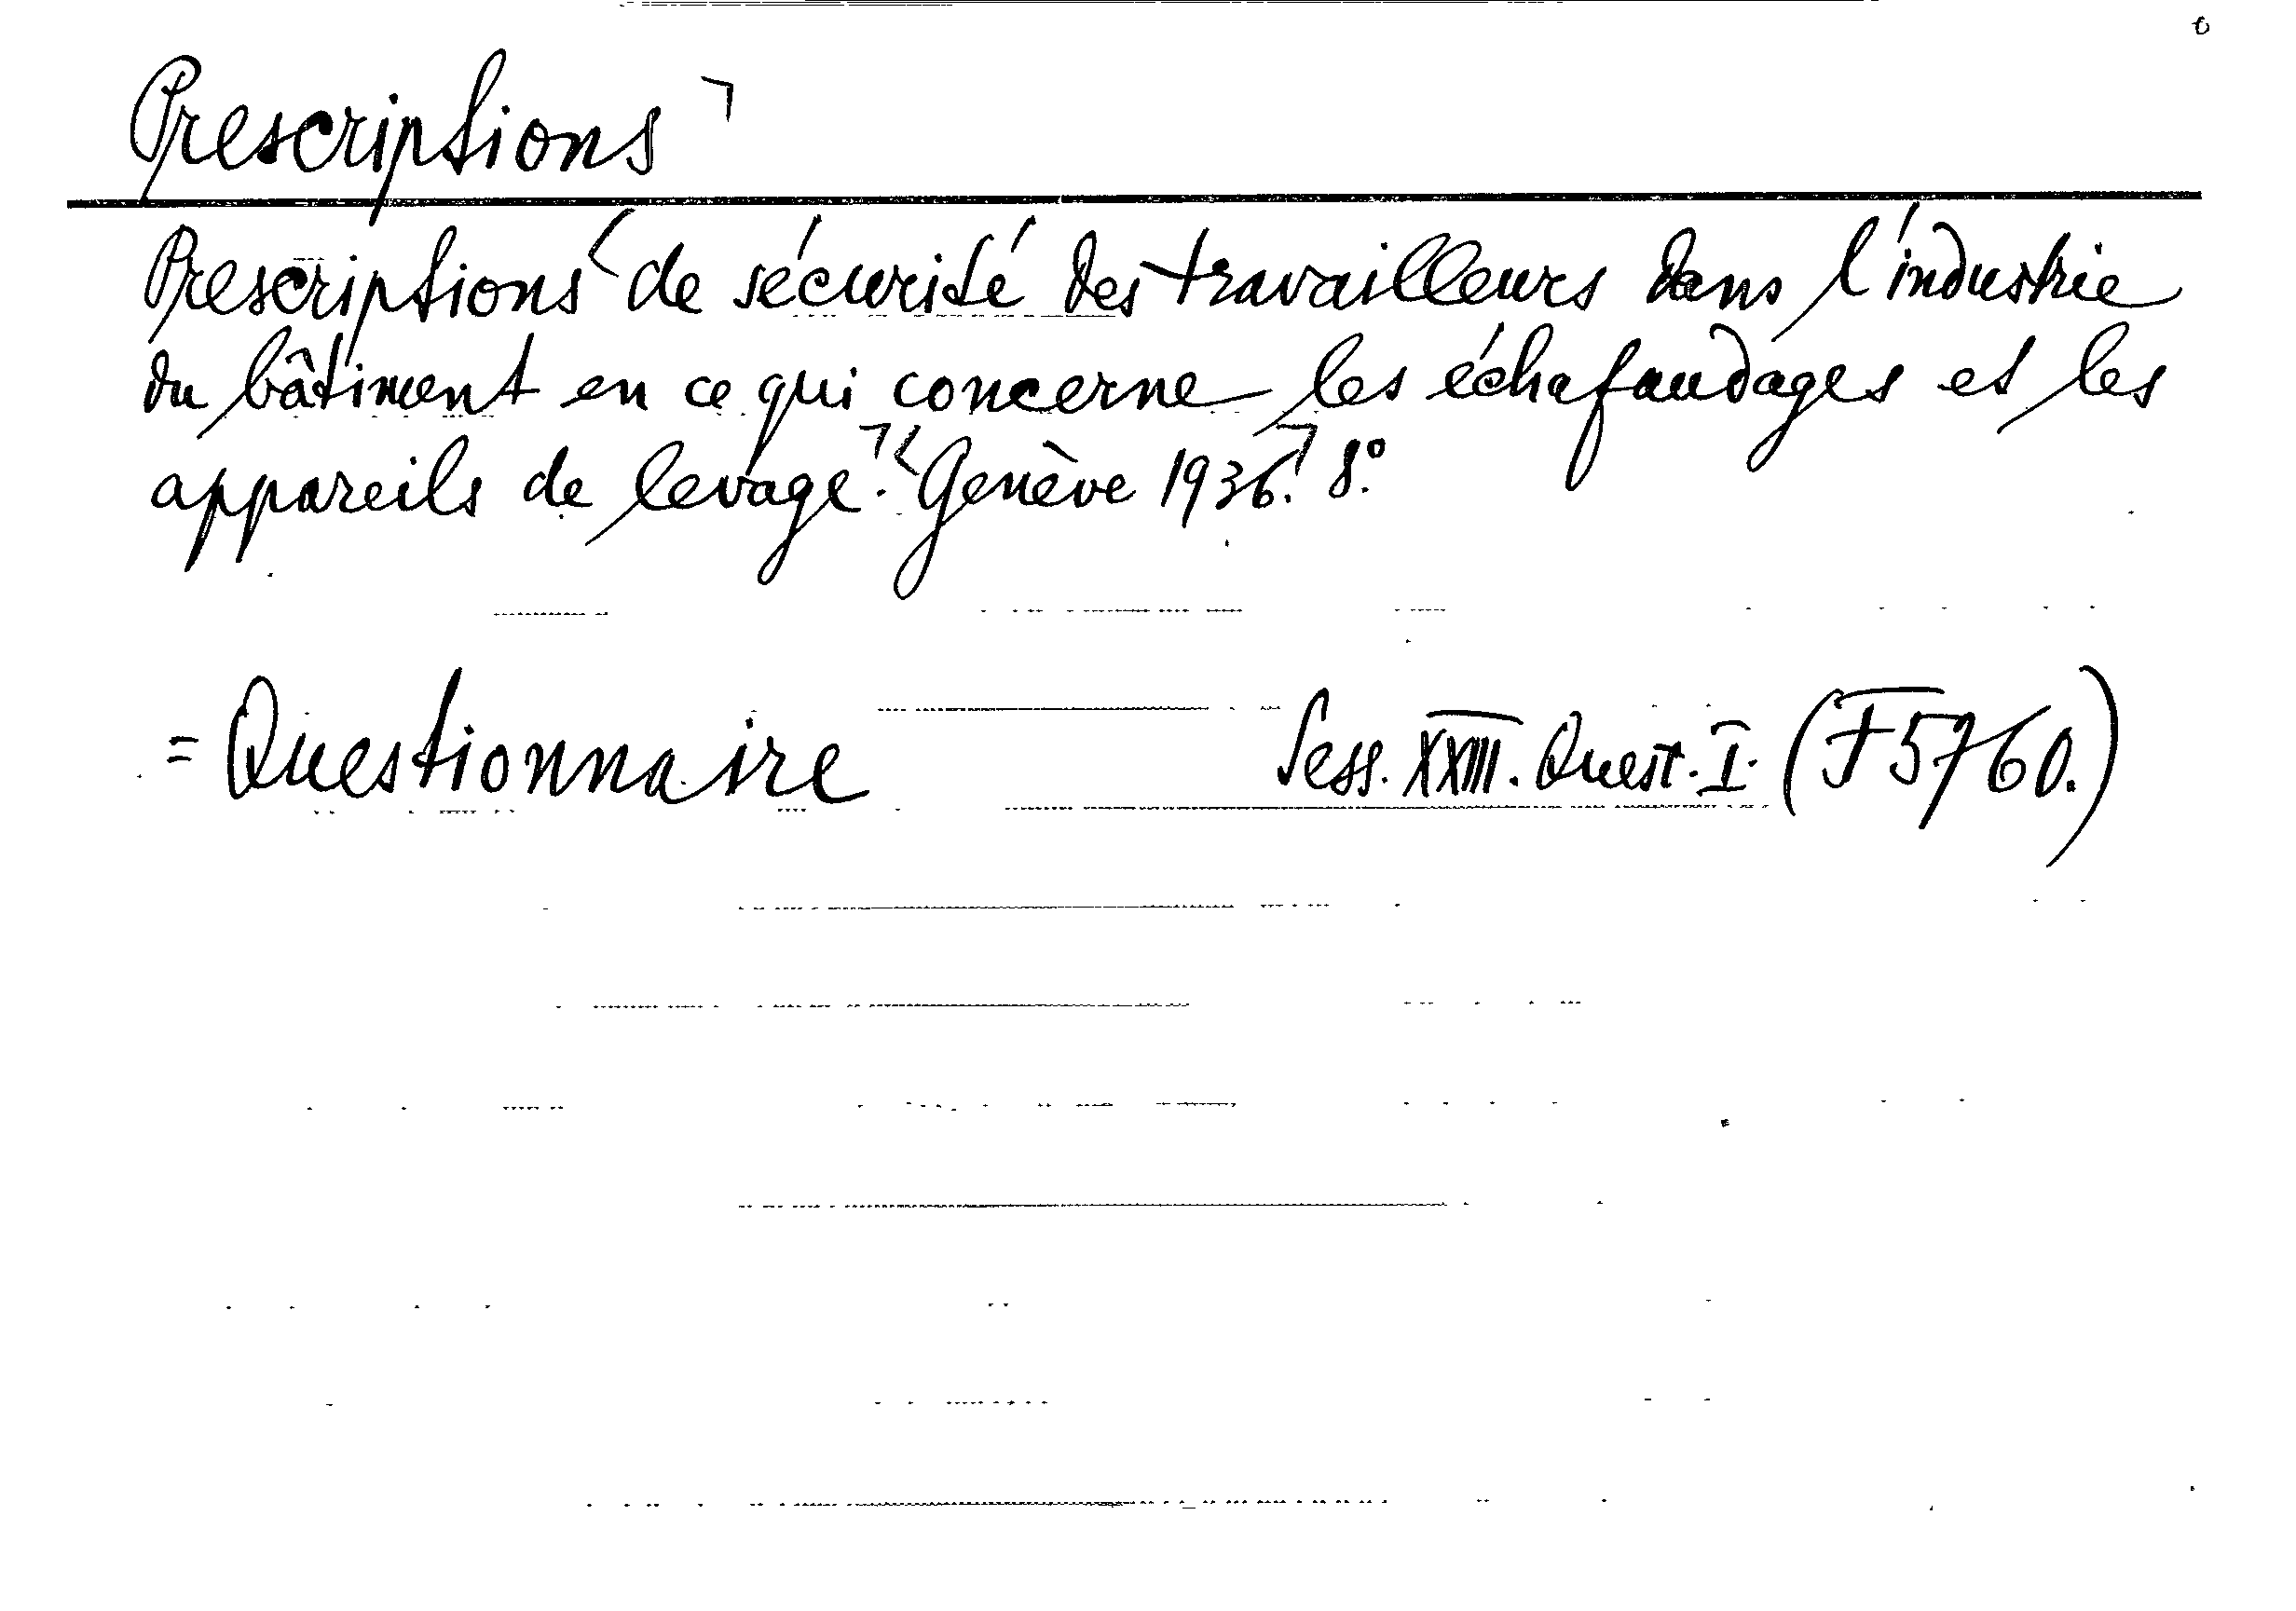 Prescriptions
Prescriptions de sécurité des travailleurs dans l'industrie
du bâtiment en ce qui concerne les échafaudages et les
appareils de levage. Genève 1936. 8.°
= Questionnaire Sess. XXIII. Quest. I. (F 5760.)